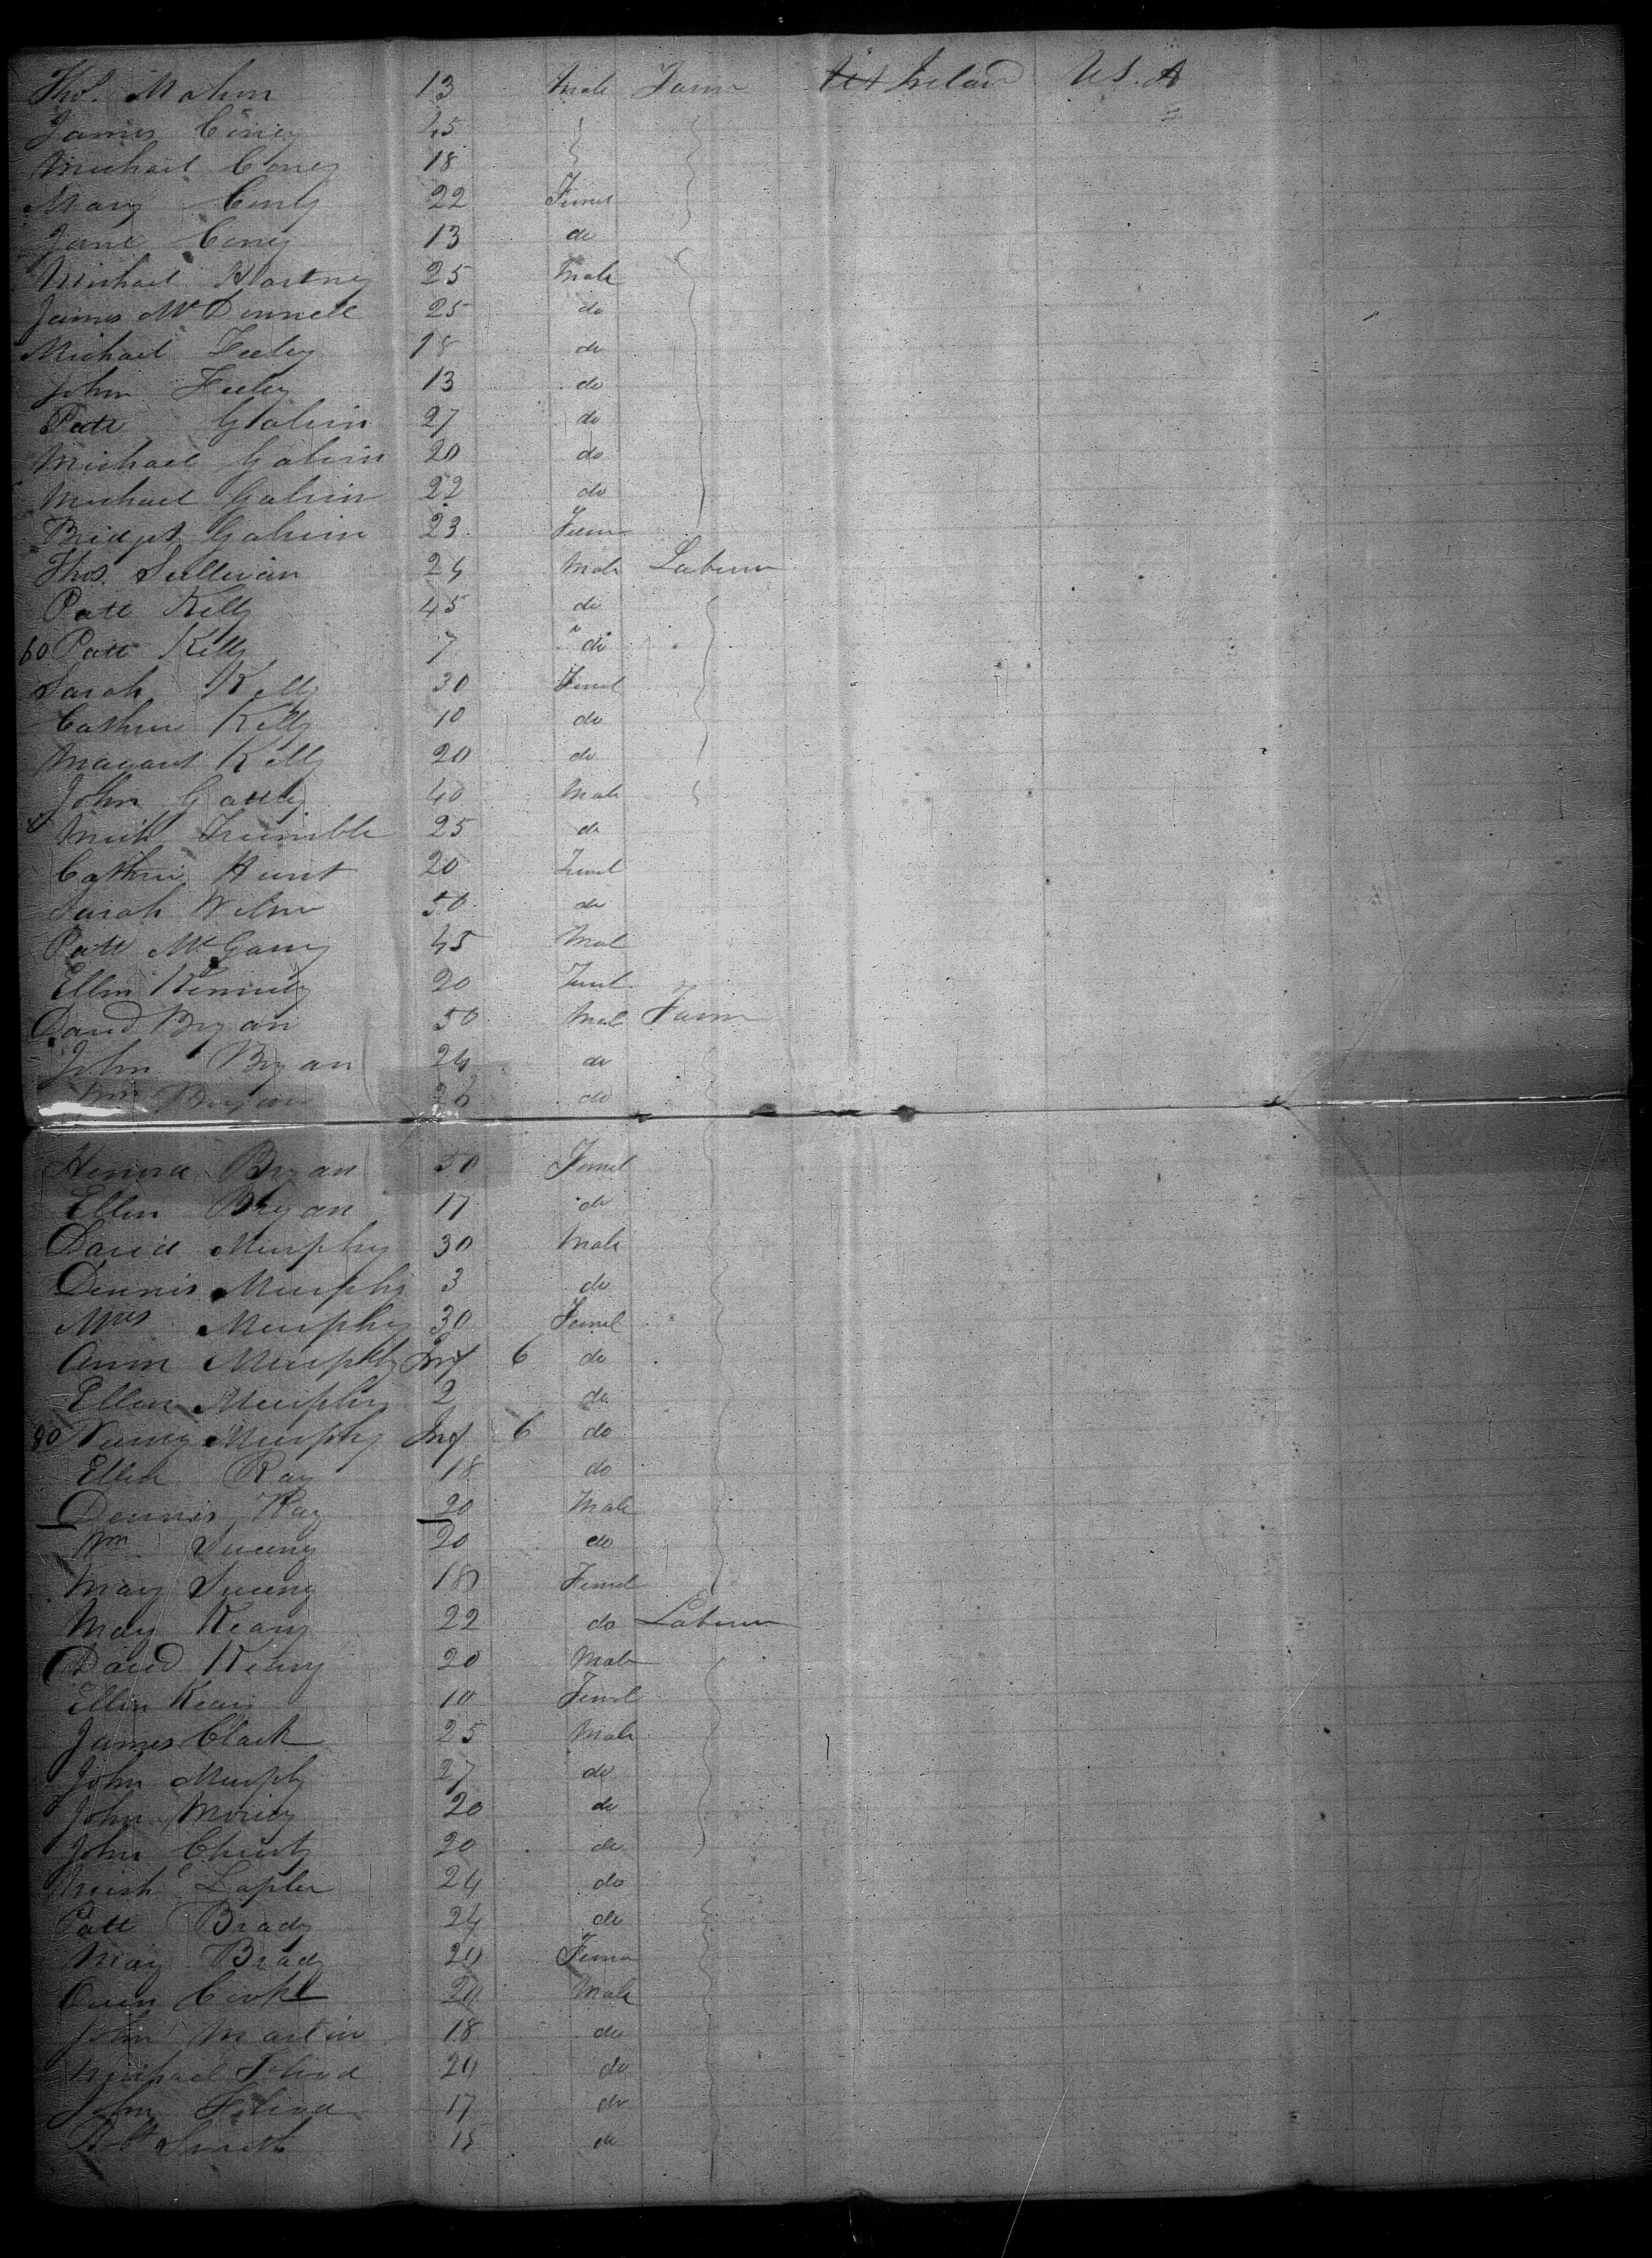 Thos. Mahon 13 Male Farmr Ireland U.S.A
James Coney 45
Michael Coney 18
Mary Coney 22 Femel
Jane Coney 13 do
Michael Hartney 25 Male
James McDonnell 25 do
Michael Feeley 18 do
John Feeley 13 do
Patt Galvin 27 do
Michael Galvin 20 do
Michael Galvin 22 do
Bridget Galvin 23 Fem
Thos. Sullivan 24 Male Laburr
Patt Kelly 45 do
60 Patt Kelly 7 do
Sarah Kelly 30 Femel
Cathrin Kelly 10 do
Margaret Kelly 20 do
John Gately 40 Male
Mich Trumble 25 do
Cathrin Hunt 20 Femel
Sarah 50 do
Patt McGarry 45 Mal
Ellen Kennedy 20 Femel
David Bryan 50 Male Farmr
John Bryan 24 do
Wm Bryan 26 do
Honora Bryan 50 Femel
Ellen Bryan 17 do
David Murphy 30 Male
Dennis Murphy 3 do
Mrs Murphy 30 Femel
Ann Murphy Inf 6 do
Ellen Murphy 2 do
80 Murphy Inf 6 do
Ellen Ray 18 do
Dennis Ray 20 Male
Wm Sweeny 20 do
Mary Sweeny 18 Femel
Mary Keary 22 do Laburr
David Keary 20 Male
Ellen Keary 10 Femel
James Clark 25 Male
John Murphy 27 do
John 20 do
John Christy 20 do
Mich 24 do
Patt Brady 24 do
Mary Brady 20 Fema
Owen Cooke 20 Male
John Martin 18 do
Michael 20 do
John 17 do
Robt Smith 15 do